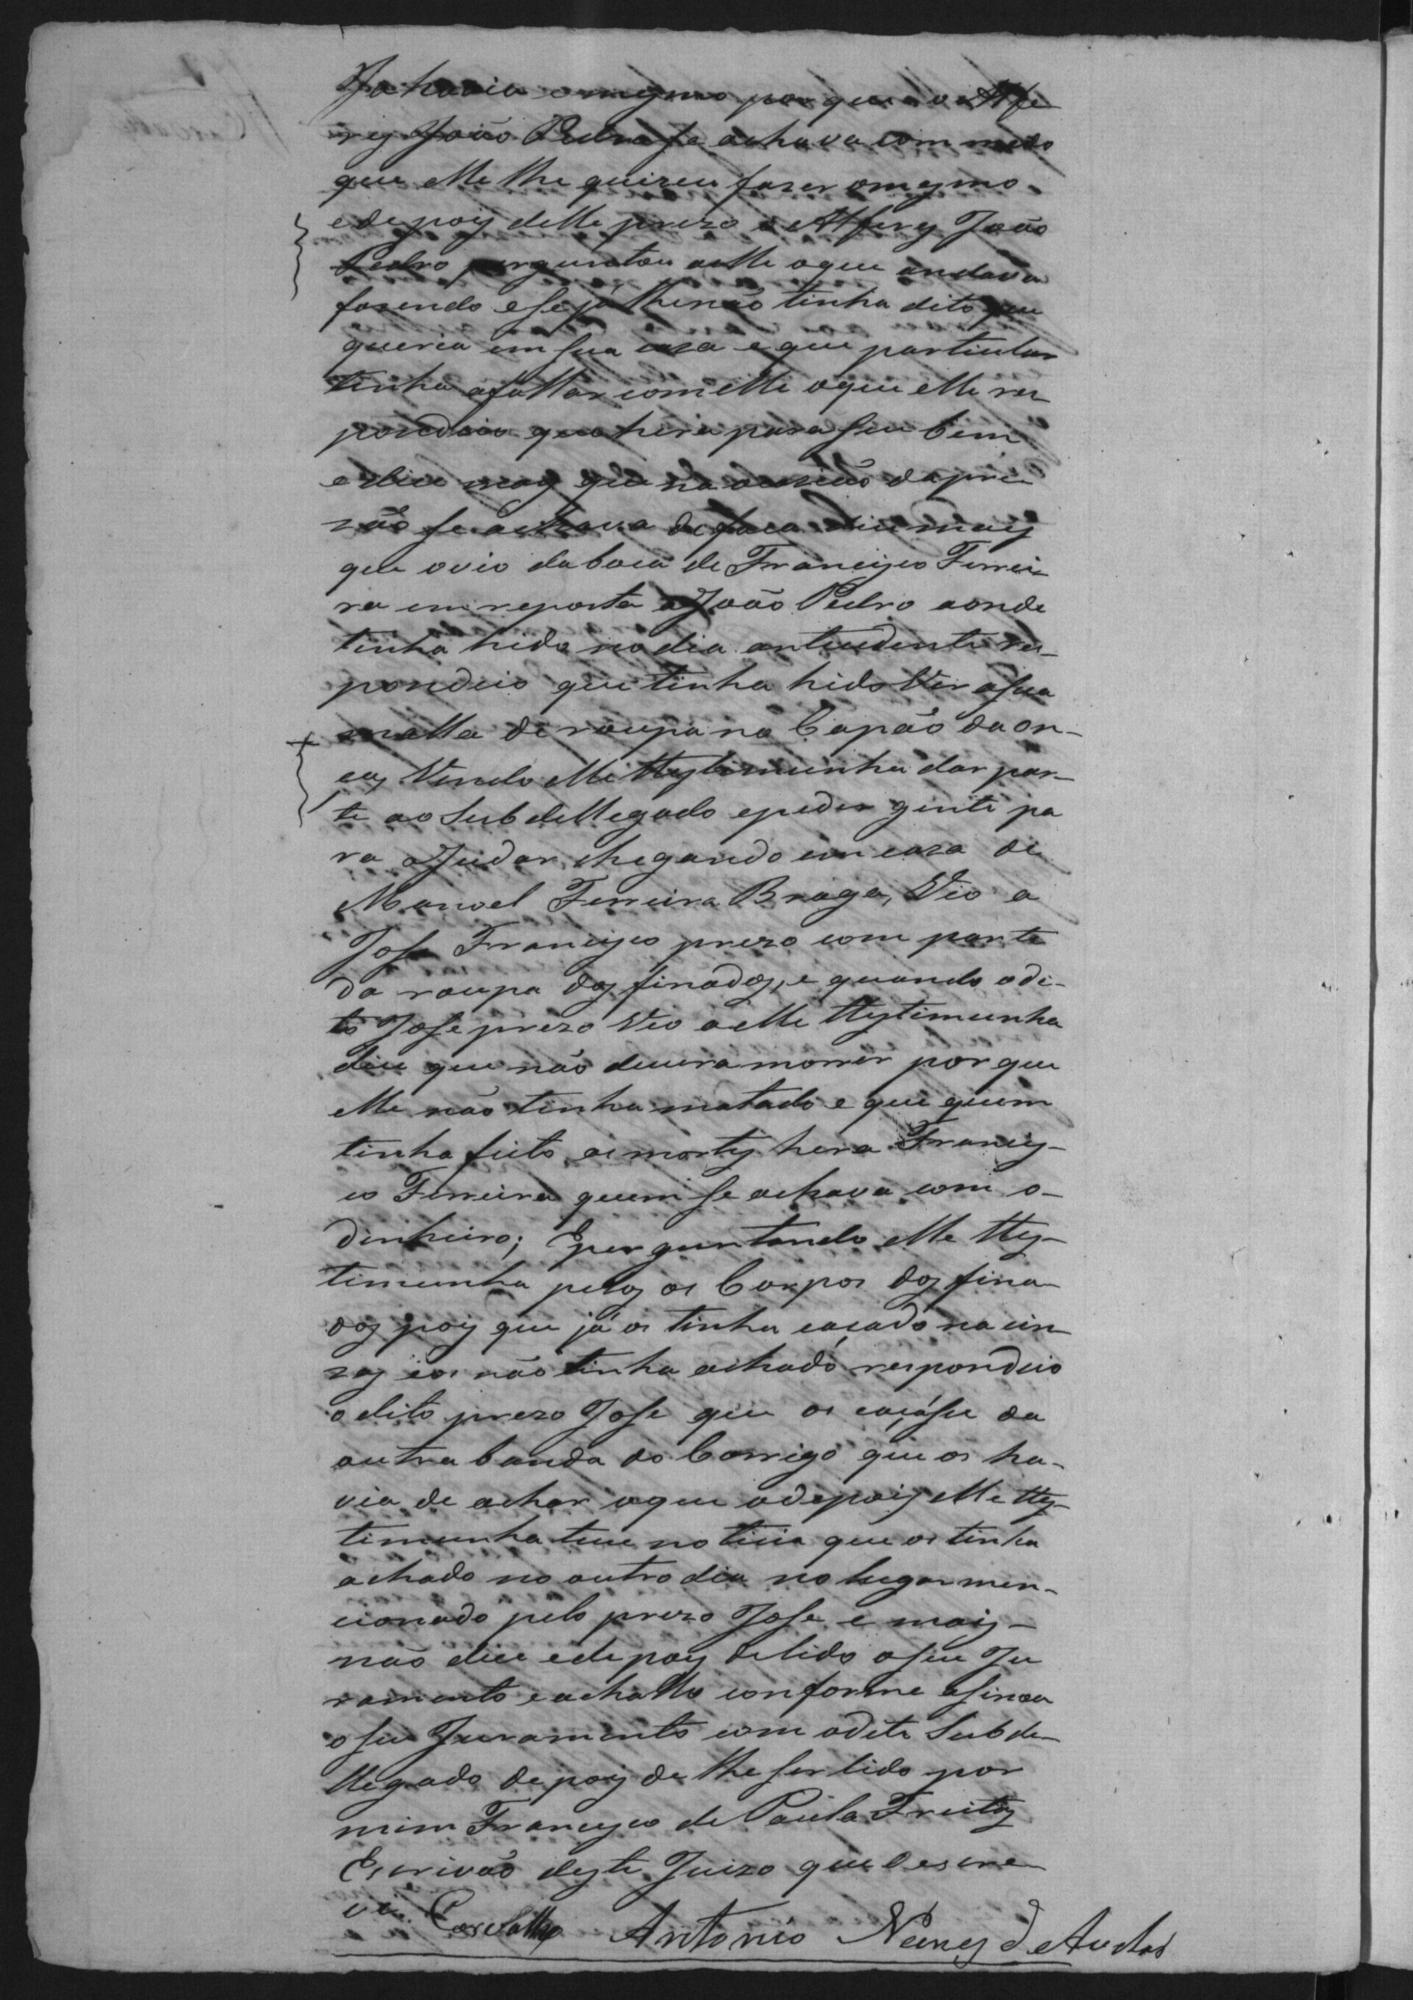 Ja havia o mesmo por que o Alfe
res João Pedro se achava com medo
que elle lhe quizeu fazer o mesmo
e depois delle prezo o Alferes João
Pedro perguntou a elle o que andava
fazendo e se já lhe não tinha dito que
queria em sua caza e que particular
tinha a fallar com elle o que elle res
pondeio que hera para seu bem
e dice mais que na ocazião da pri
zão se achava de faca dice mais
que ovio da boca de Francisco Ferrei
ra em reposta a João Pedro aonde
tinha hido no dia antecedente res-
pondeio que tinha hido ver a sua
malla de roupa no Capão da on-
ça, Vindo elle testemunha dar par-
te ao Subdellegado e pedir gente pa
ra ajudar, chegando em caza de
Manoel Ferreira Braga, Vio a
Jose Francisco prezo com parte
da roupa dos finados, e quando o di-
to Jose prezo Vio a elle testimunha
dice que não devera morrer por que
elle não tinha matado e que quem
tinha feito as mortes hera Francis-
co Ferreira quem se achava com o-
dinheiro; E perguntando elle tes-
timunha pelos os Corpos dos fina-
dos pois que já os tinha caçado na cin
zas e os não tinha achado respondeio
o dito prezo Jose que os caçáse da
outra banda do Corrigo que os ha-
via de achar o que a depois elle tes-
timunha teve noticia que os tinha
achado no outro dia no lugar men-
cionado pelo prezo Jose e mais-
não dice e depois de lido o seu Ju
ramento e achallo conforme asinou
o seu Juramento com o dito Subde-
llegado depois de lhe ser lido por
mim Francisco de Paula Freitas
Escrivão deste Juizo que escre
vi. Carvalho Antonio Nunes de